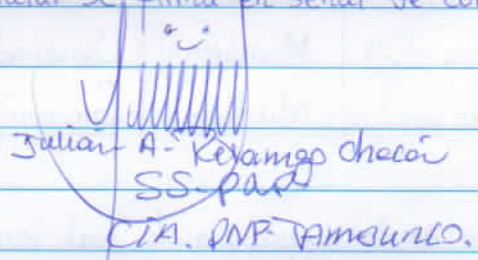 se firma en señal de con
Julian A. Reyamgo Chacón
SS-PNP
CIA. PNP- TAMBURCO.